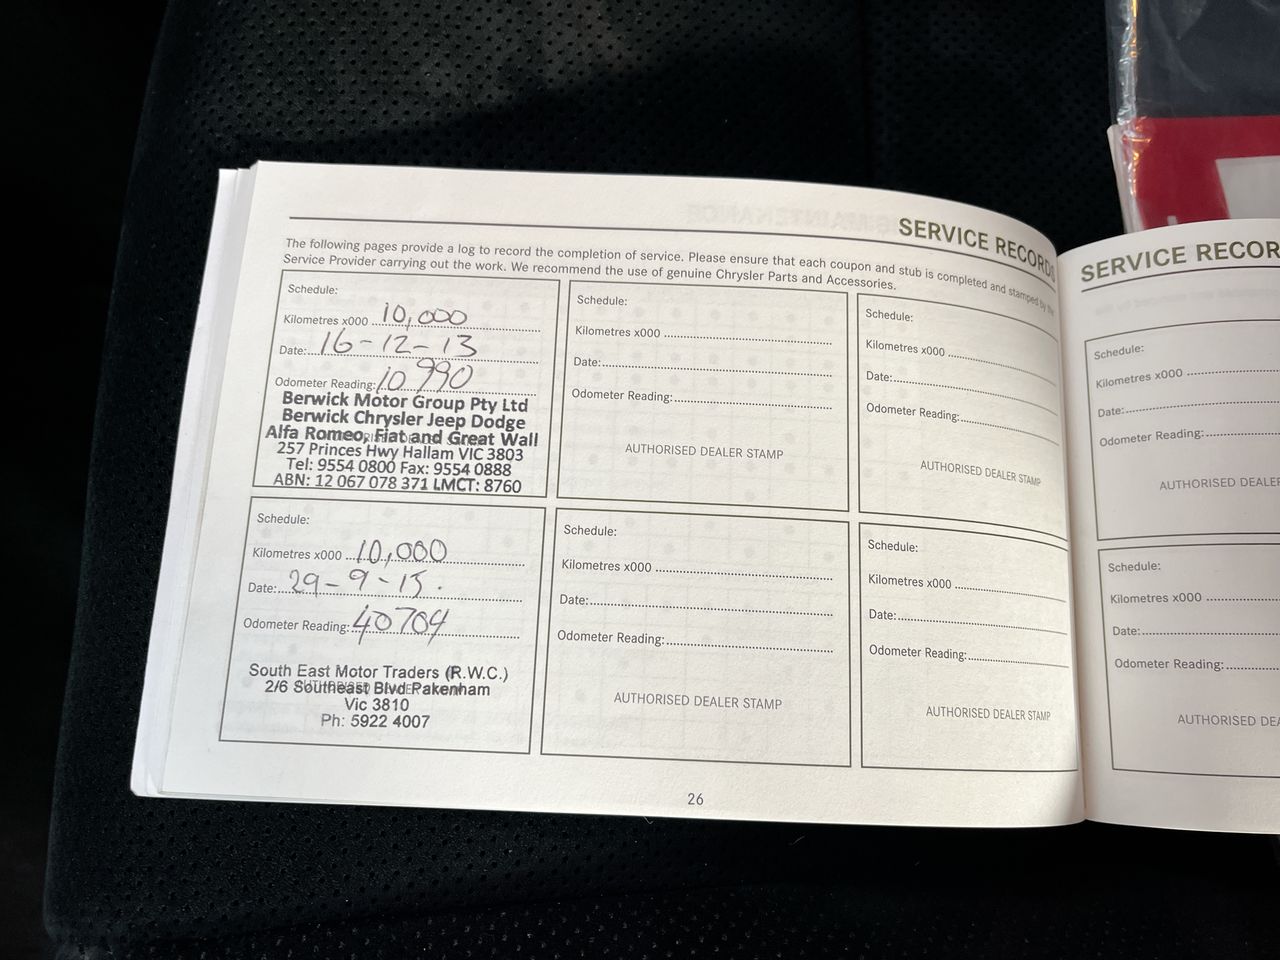 SERVICE RECORDS
The following pages provide a log to record the completion of service. Please ensure that each coupon and stub is completed and stamped by the
Service Provider carrying out the work. We recommend the use of genuine Chrysler Parts and Accessories.
Schedule:
Kilometres x000 10,000
Date: 16-12-13
Odometer Reading: 10990
Berwick Motor Group Pty Ltd
Berwick Chrysler Jeep Dodge
Alfa Romeo, Fiat and Great Wall
257 Princes Hwy Hallam VIC 3803
Tel: 9554 0800 Fax: 9554 0888
ABN: 12 067 078 371 LMCT: 8760
Schedule:
Kilometres x000
Date:
Odometer Reading:
AUTHORISED DEALER STAMP
Schedule:
Kilometres x000
Date:
Odometer Reading:
AUTHORISED DEALER STAMP
Schedule:
Kilometres x000 10,000
Date: 29-9-15.
Odometer Reading: 40704
South East Motor Traders (R.W.C.)
2/6 Southeast Blvd Pakenham
Vic 3810
Ph: 5922 4007
Schedule:
Kilometres x000
Date:
Odometer Reading:
AUTHORISED DEALER STAMP
Schedule:
Kilometres x000
Date:
Odometer Reading:
AUTHORISED DEALER STAMP
26
SERVICE RECOR
Schedule:
Kilometres x000
Date:
Odometer Reading:
AUTHORISED DEALER
Schedule:
Kilometres x000
Date:
Odometer Reading:
AUTHORISED DEA